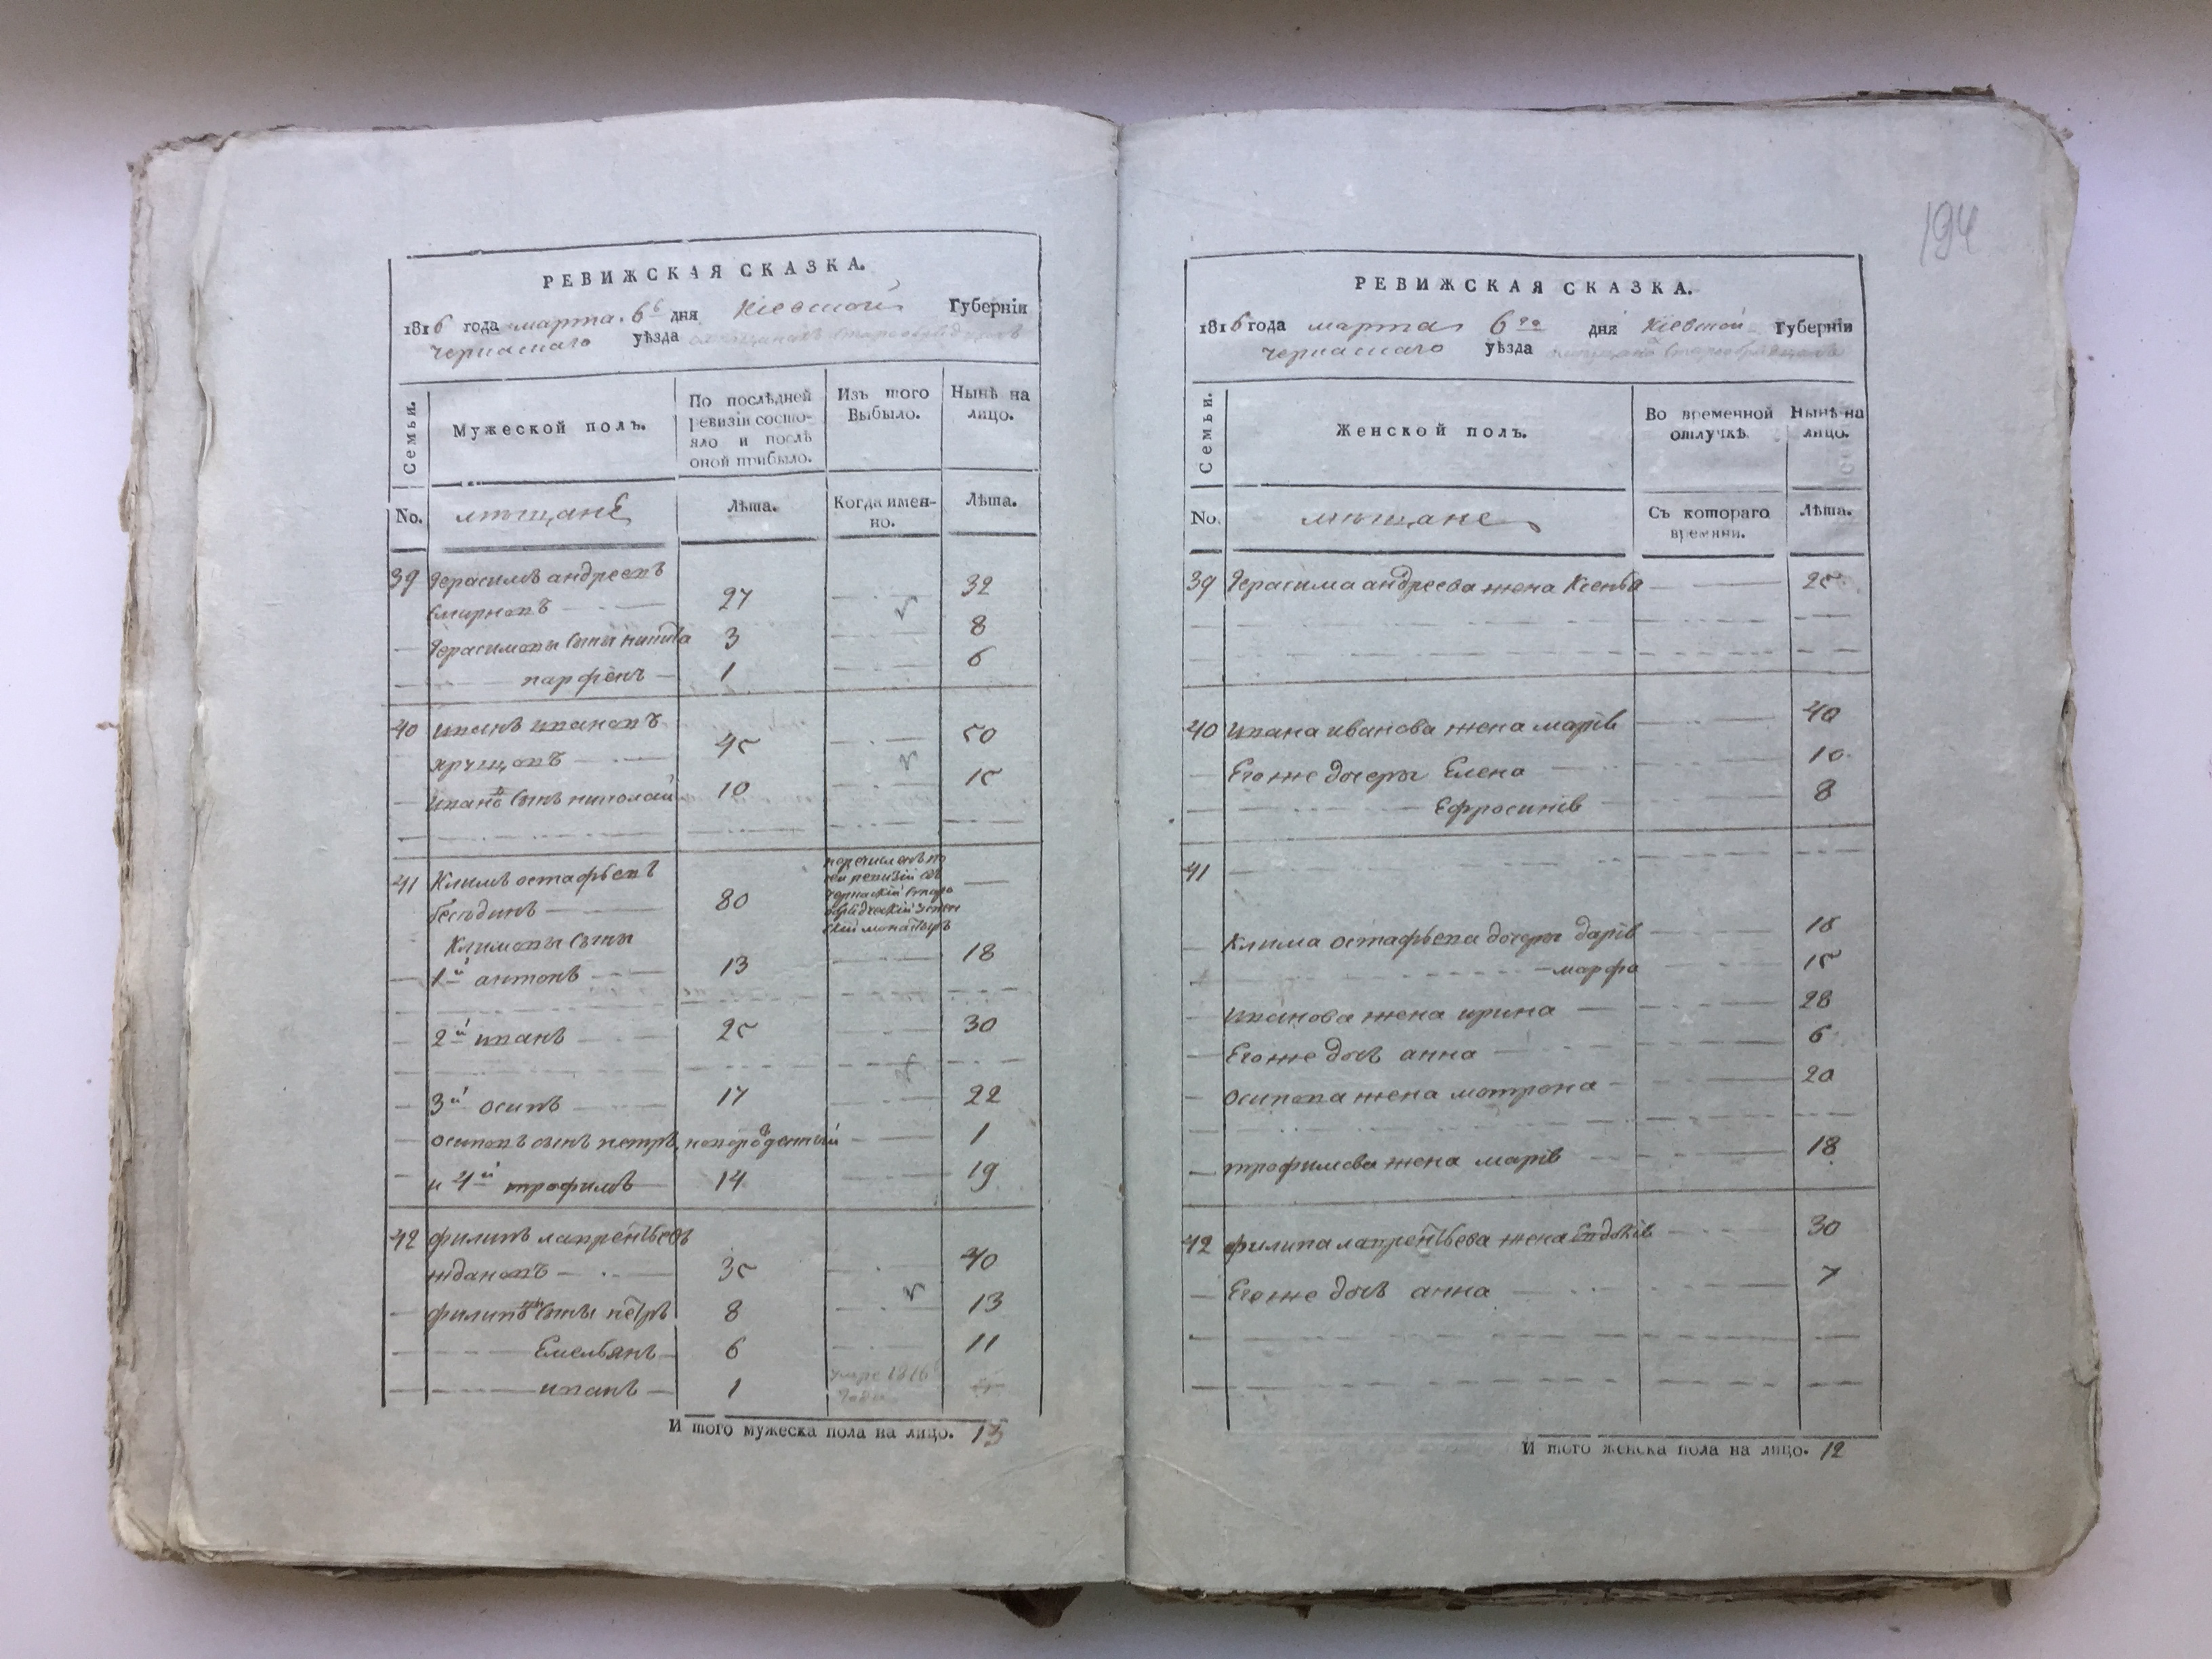 194
РЕВИЖСКАЯ СКАЗКА.
1816 года марта 6 дня Кіевской Губерніи
черкаскаго уѣзда мещанъ старообрядцовъ
Семьи.
Мужеской полъ.
По послѣдней ревизіи состо-
яло и послѣ
оной прибыло.
Изъ того
Выбыло.
Нынѣ на
лицо.
No. мѣщане Лѣта. Когда имен-
но. Лѣта.
39 Герасимъ андреевъ
Смирновъ 27 32
Герасимовы сыны никита 3 8
парфенъ 1 6
40 иванъ ивановъ
45 50
ивановъ сынъ николай 10 15
41 Климъ остафьевъ
бесѣдинъ 80
перечисленъ по
сей ревизіи въ
черкаскій старо
обрядческій
монастырь
Климовы сыны
1й антонъ 13 18
2й иванъ 25 30
3й осипъ 17 22
осиповъ сынъ петръ, новорожденный 1
и 4й трофимъ 14 19
42 филипъ лаврентьевъ
ждановъ 35 40
филиповы сыны петръ 8 13
Емельянъ 6 11
иванъ 1 умре 1816 года
И того мужеска пола на лицо. 13
РЕВИЖСКАЯ СКАЗКА.
1816 года марта 6го дня Кіевской Губерніи
черкаскаго уѣзда мещанъ старообрядцовъ
Семьи.
Женской полъ.
Во временной
отлучкѣ.
Нынѣ на
лицо.
No. мѣщане Съ котораго
времяни. Лѣта.
39 Герасима андреева жена Ксенья 25
40 ивана иванова жена марія 40
Его же дочеры Елена 10
Ефросинія 8
41
Клима остафьева дочеры дарія 18
марфа 15
иванова жена ирина 28
Его же дочь анна 6
осипова жена мотрона 20
трофимова жена марія 18
42 филипа лаврентьева жена Евдокія 30
Его же дочь анна 7
И того женска пола на лицо. 12